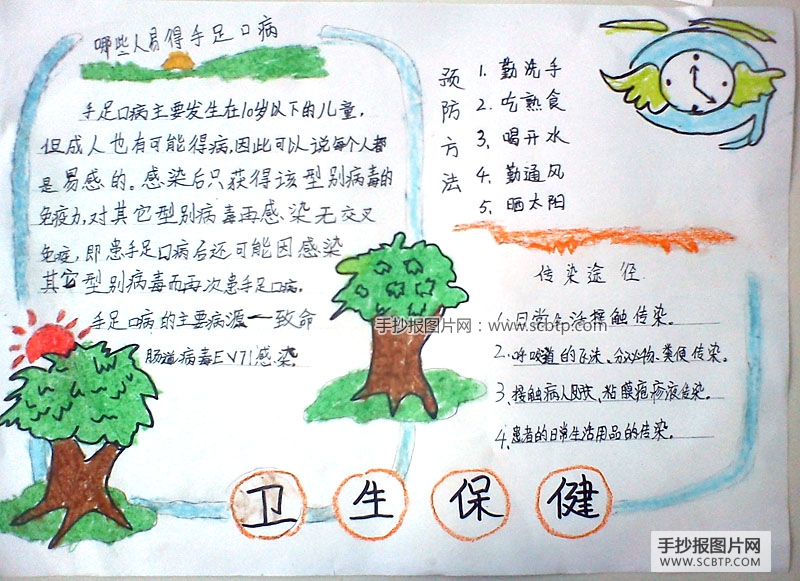 哪些人易得手足口病
手足口病主要发生在10岁以下的儿童,
但成人也有可能得病,因此可以说每个人都
是易感的。感染后只获得该型别病毒的
免疫力,对其它型别病毒再感染无交叉
免疫,即患手足口病后还可能因感染
其它型别病毒而再次患手足口病。
手足口病的主要病源一致命
肠道病毒EV71感染。
预防方法
1. 勤洗手
2. 吃熟食
3. 喝开水
4. 勤通风
5. 晒太阳
传染途径
1. 日常生活接触传染。
2. 呼吸道的飞沫、分泌物、粪便传染。
3、接触病人皮肤、粘膜疱疹液传染。
4、患者的日常生活用品的传染。
手抄报图片网:www.scbtp.com
卫生保健
手抄报图片网
WWW.SCBTP.COM